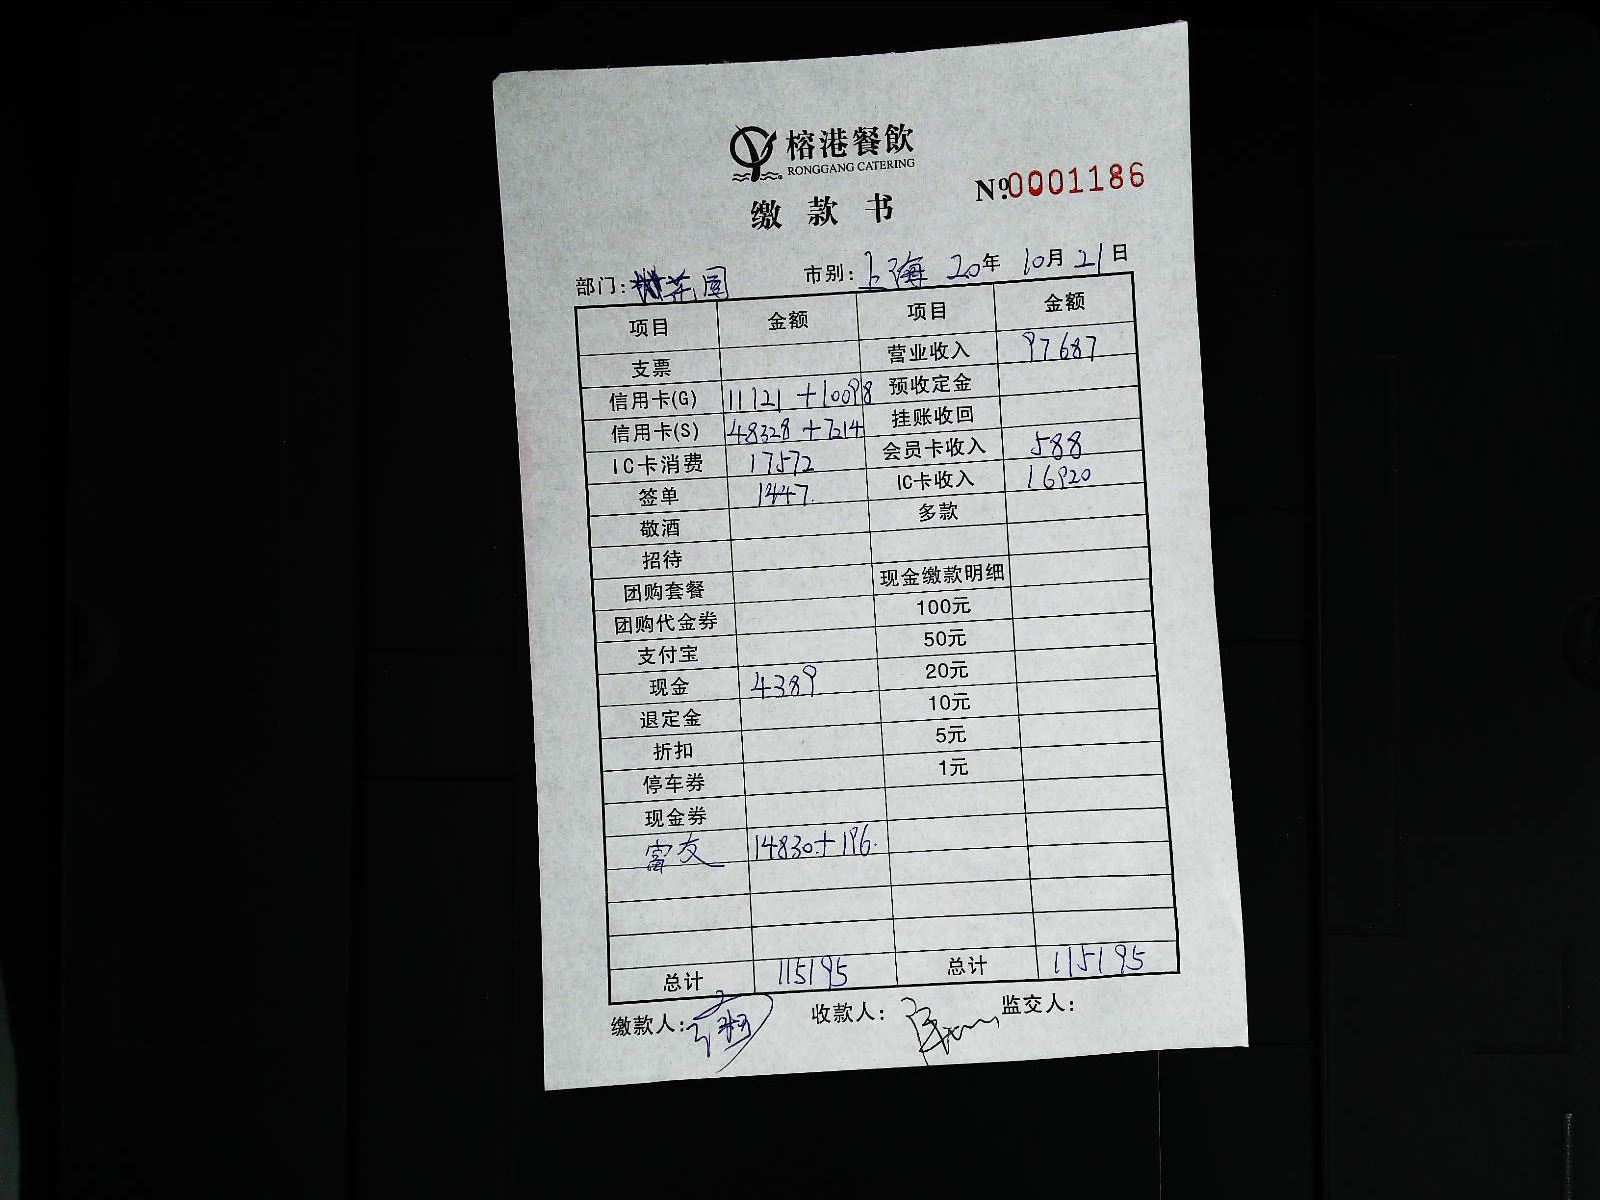 榕港餐飲
RONGGANG CATERING
缴款书
№0001186
部门:花园 市别:上海 20年 10月 21日
项目 金额 项目 金额
支票 营业收入 97687
信用卡(G) 11121+10098 预收定金
信用卡(S) 48328+7214 挂账收回
IC卡消费 17572 会员卡收入 588
签单 1447. IC卡收入 16920
敬酒 多款
招待
团购套餐 现金缴款明细
团购代金券 100元
支付宝 50元
现金 4389 20元
退定金 10元
折扣 5元
停车券 1元
现金券
富友 14830.+196.
总计 115195 总计 115195
缴款人: 收款人: 监交人: